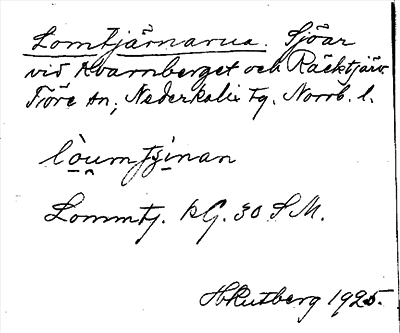 Lomtjärnarna. Sjöar
vid Kvarnberget och Räcktjärv
Töre sn, Nederkalix tg. Norrb. l.
lo̱u̯mtji̱nan
Lommtj. kG. 30 S M.
H Rutberg 1925.